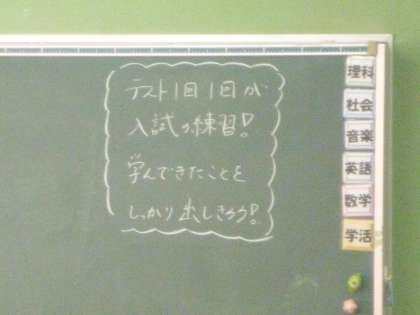 テスト1回1回が
入試の練習!
学んできたことを
しっかり出しきろう!
理科
社会
音楽
英語
数学
学活